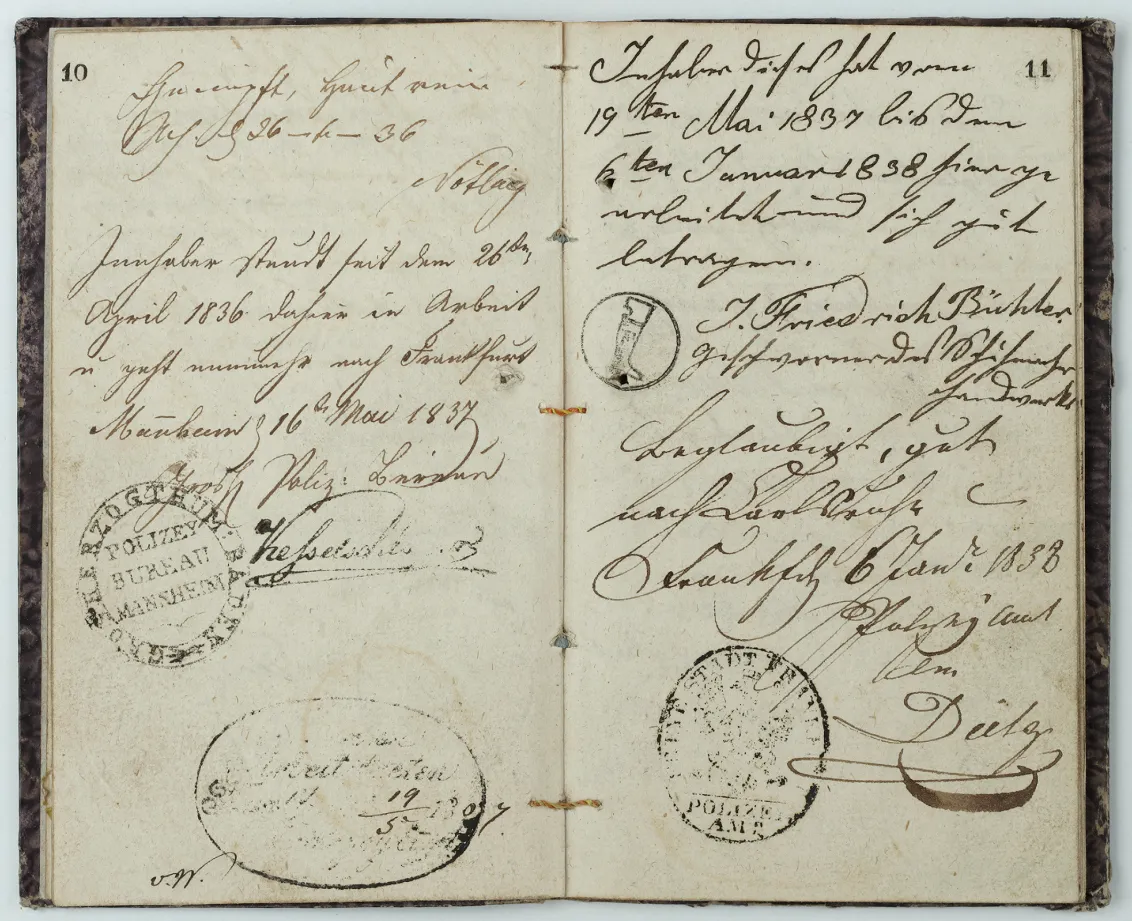 10
Geimpft, Haut rein
26 36
Nötling
Innhaber steudt seit dem 26ten
April 1836 dahier in Arbeit
u geht nunmehr nach Frankfurt
Mannheim 16t Mai 1837
Grosh Poliz: Büreau
GROSHERZOGTHUM BADEN
POLIZEY
BUREAU
MANNHEIM
Arbeit
19
5
v.W.
11
Inhaber dieses hat vom
19ten Mai 1837 bis den
6ten Januar 1838 hier ge
arbeitet und sich gut
betragen.
J. Friedrich Büchler
geschworner des Schuhmacher
handwerks
Beglaubigt, gut
nach Carlsruhe
Frankfth 6 Janr 1838
Polizey Amt
STADT
POLIZEI
AMT